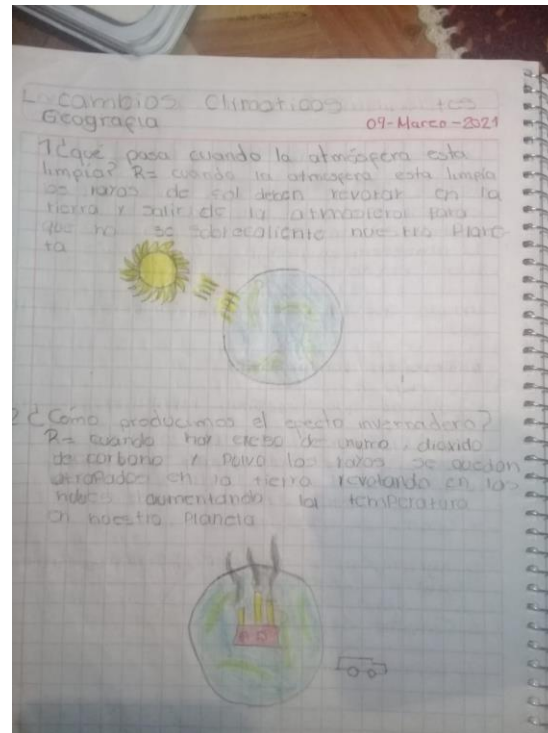 Lo cambios climaticos
Geografia 09-Marzo-2021
1 ¿que pasa cuando la atmósfera esta
limpia? R= cuando la atmosfera esta limpia
los rayos de sol deven revotar en la
tierra y salir de la atmosfera para
que no se sobrecaliente nuestro Plane-
ta
2 ¿Cómo producimos el efecto invernadero?
R= cuando hay exeso de humo, dioxido
de carbono y Polvo los rayos se quedan
atrapados en la tierra revotando en las
nubes aumentando la temperatura
en nuestro Planeta